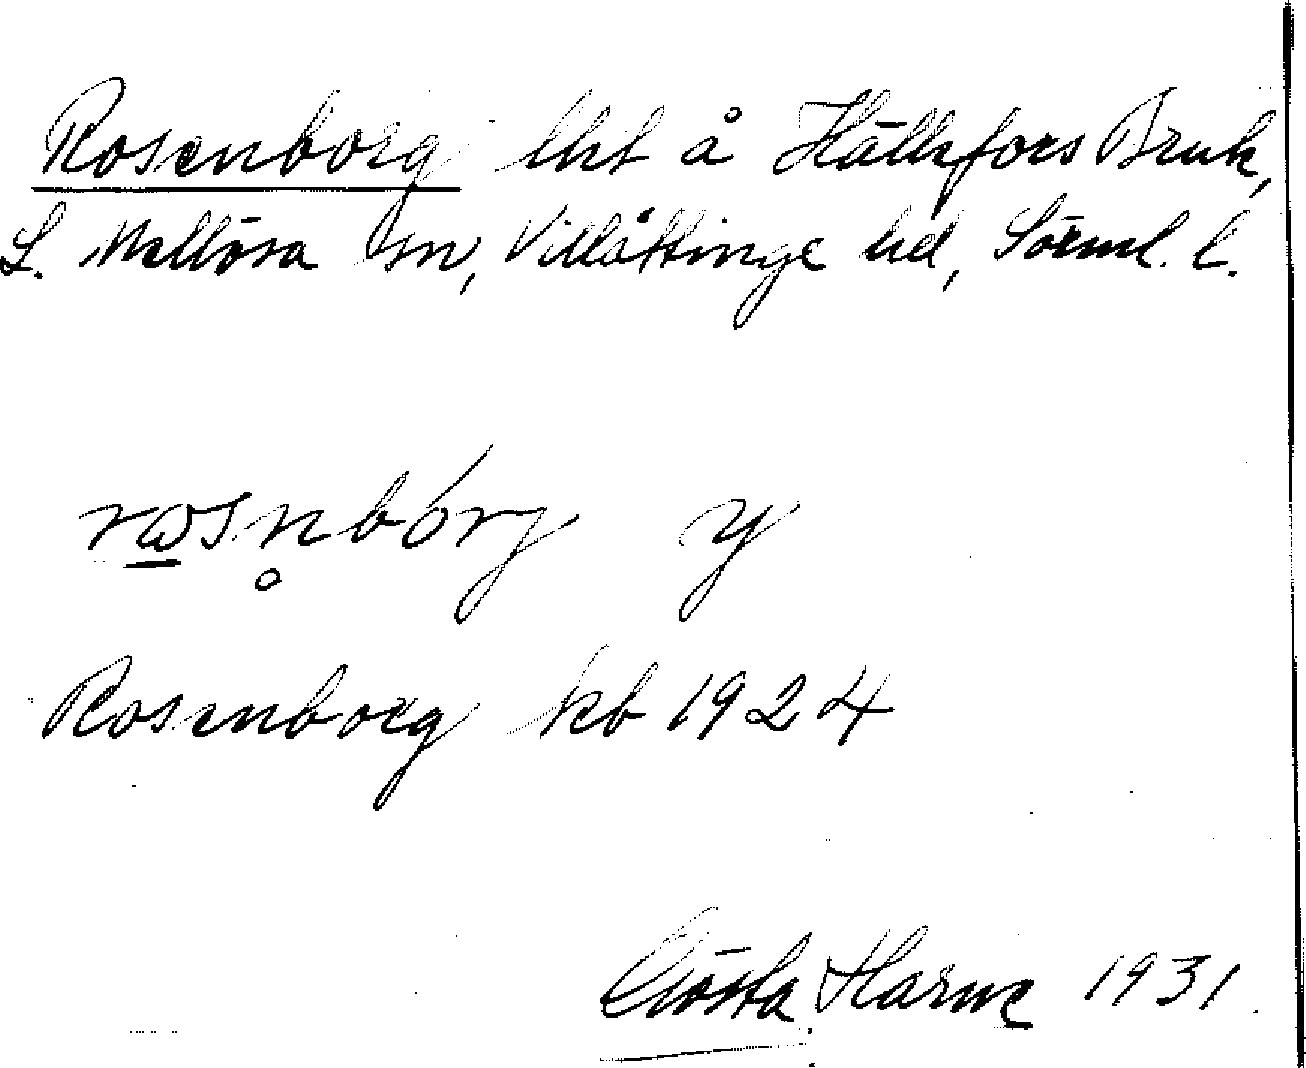 Rosenborg lht å Hälleforsbruk,
L. Mellösa sn, Villåttinge hd, Sörml. l.
rosnbórj y
Rosenborg kb 1924
Gösta Harne 1931.